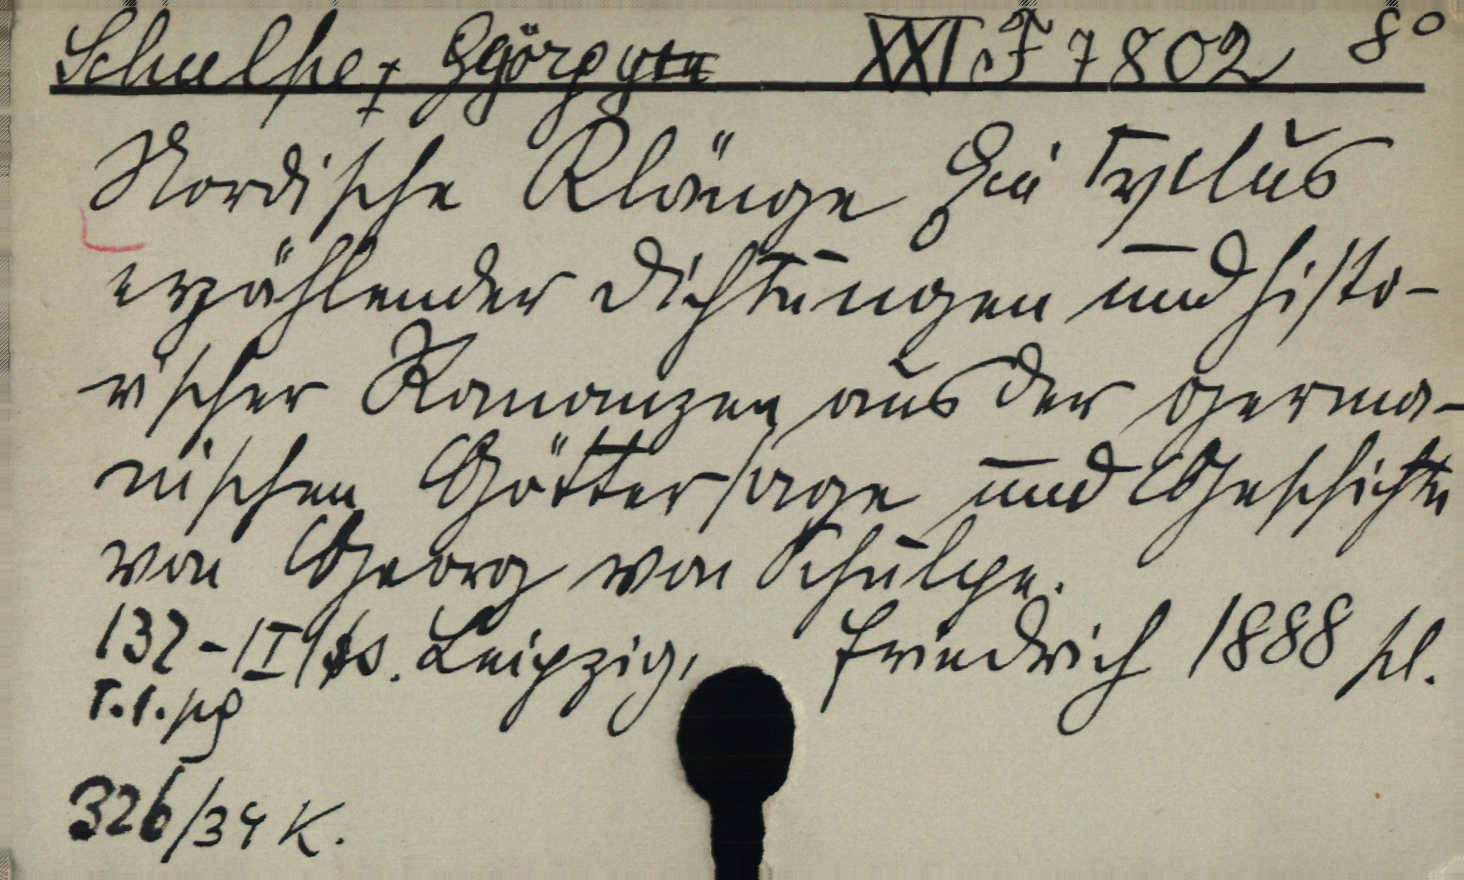 Schulpe, György XXI F 7802 8°
Nordische Klänge Ein Cyclus
erzählender Dichtungen und histo-
rischer Romanzen aus der germa-
nischen Göttersage und Geschichte
von Georg von Schulpe.
132-/I/ s. Leipzig, Friedrich 1888 kl.
T. 1. sg
326/34 K.